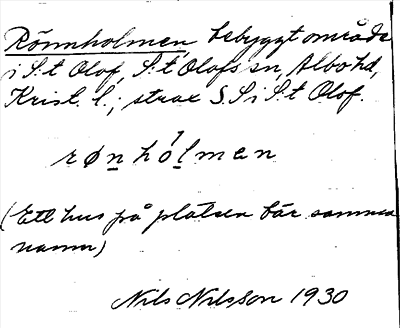 Rönnholmen, bebyggt område
i S:t Olof, S:t Olofs sn, Albo hd,
Krist. l.; strax S. i S:t Olof.
rønhólmen
(Ett hus på platsen bär samma
namn)
Nils Nilsson 1930